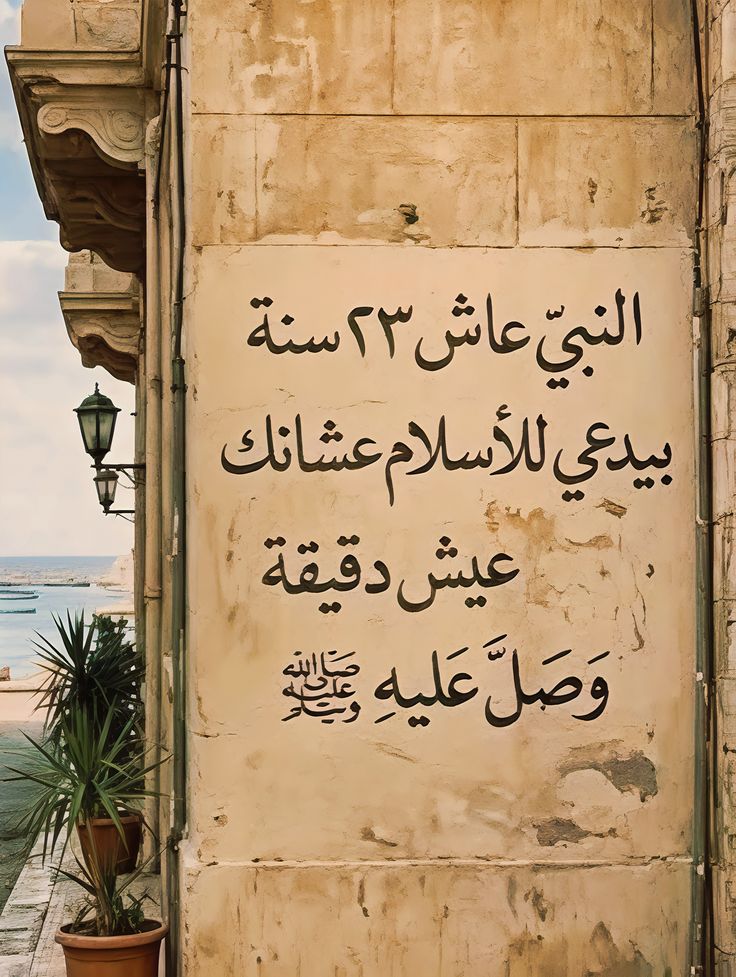 النبيّ عاش ٢٣ سنة
بيدعي للأسلام عشانك
عيش دقيقة
وَصَلَّ عَليهِ ﷺ